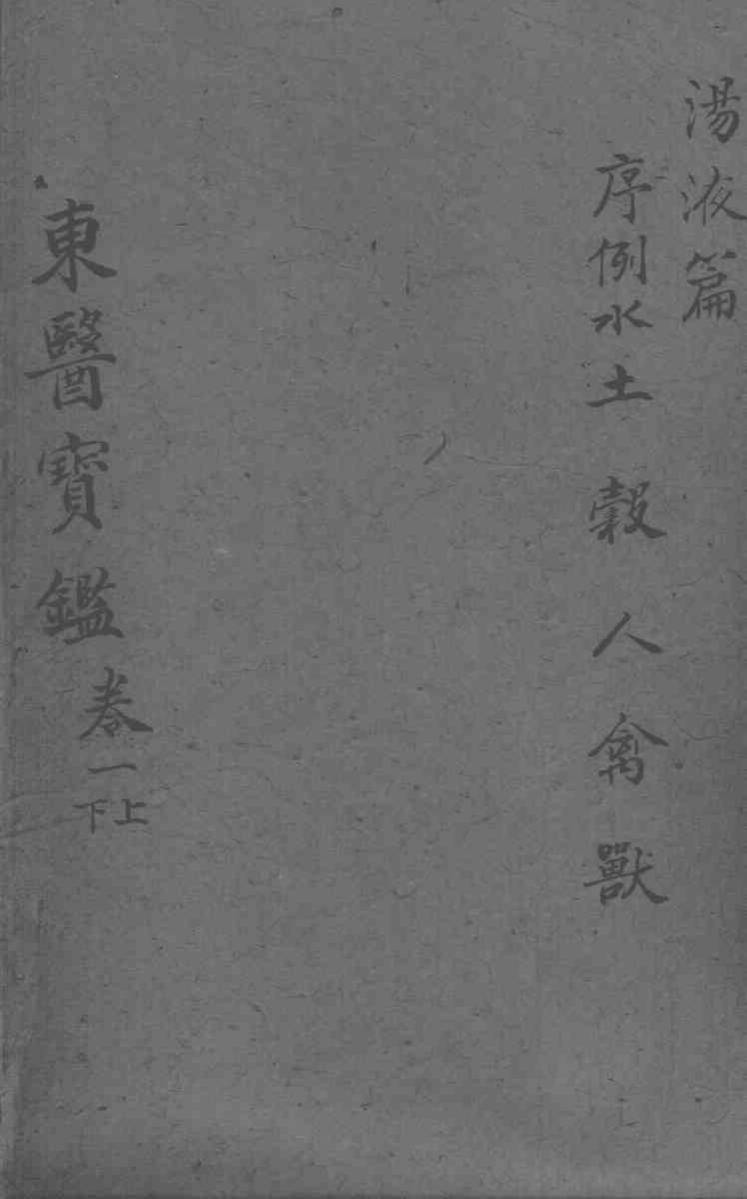 湯液篇
序例水土穀人禽獸
東醫寶鑑卷一
上下